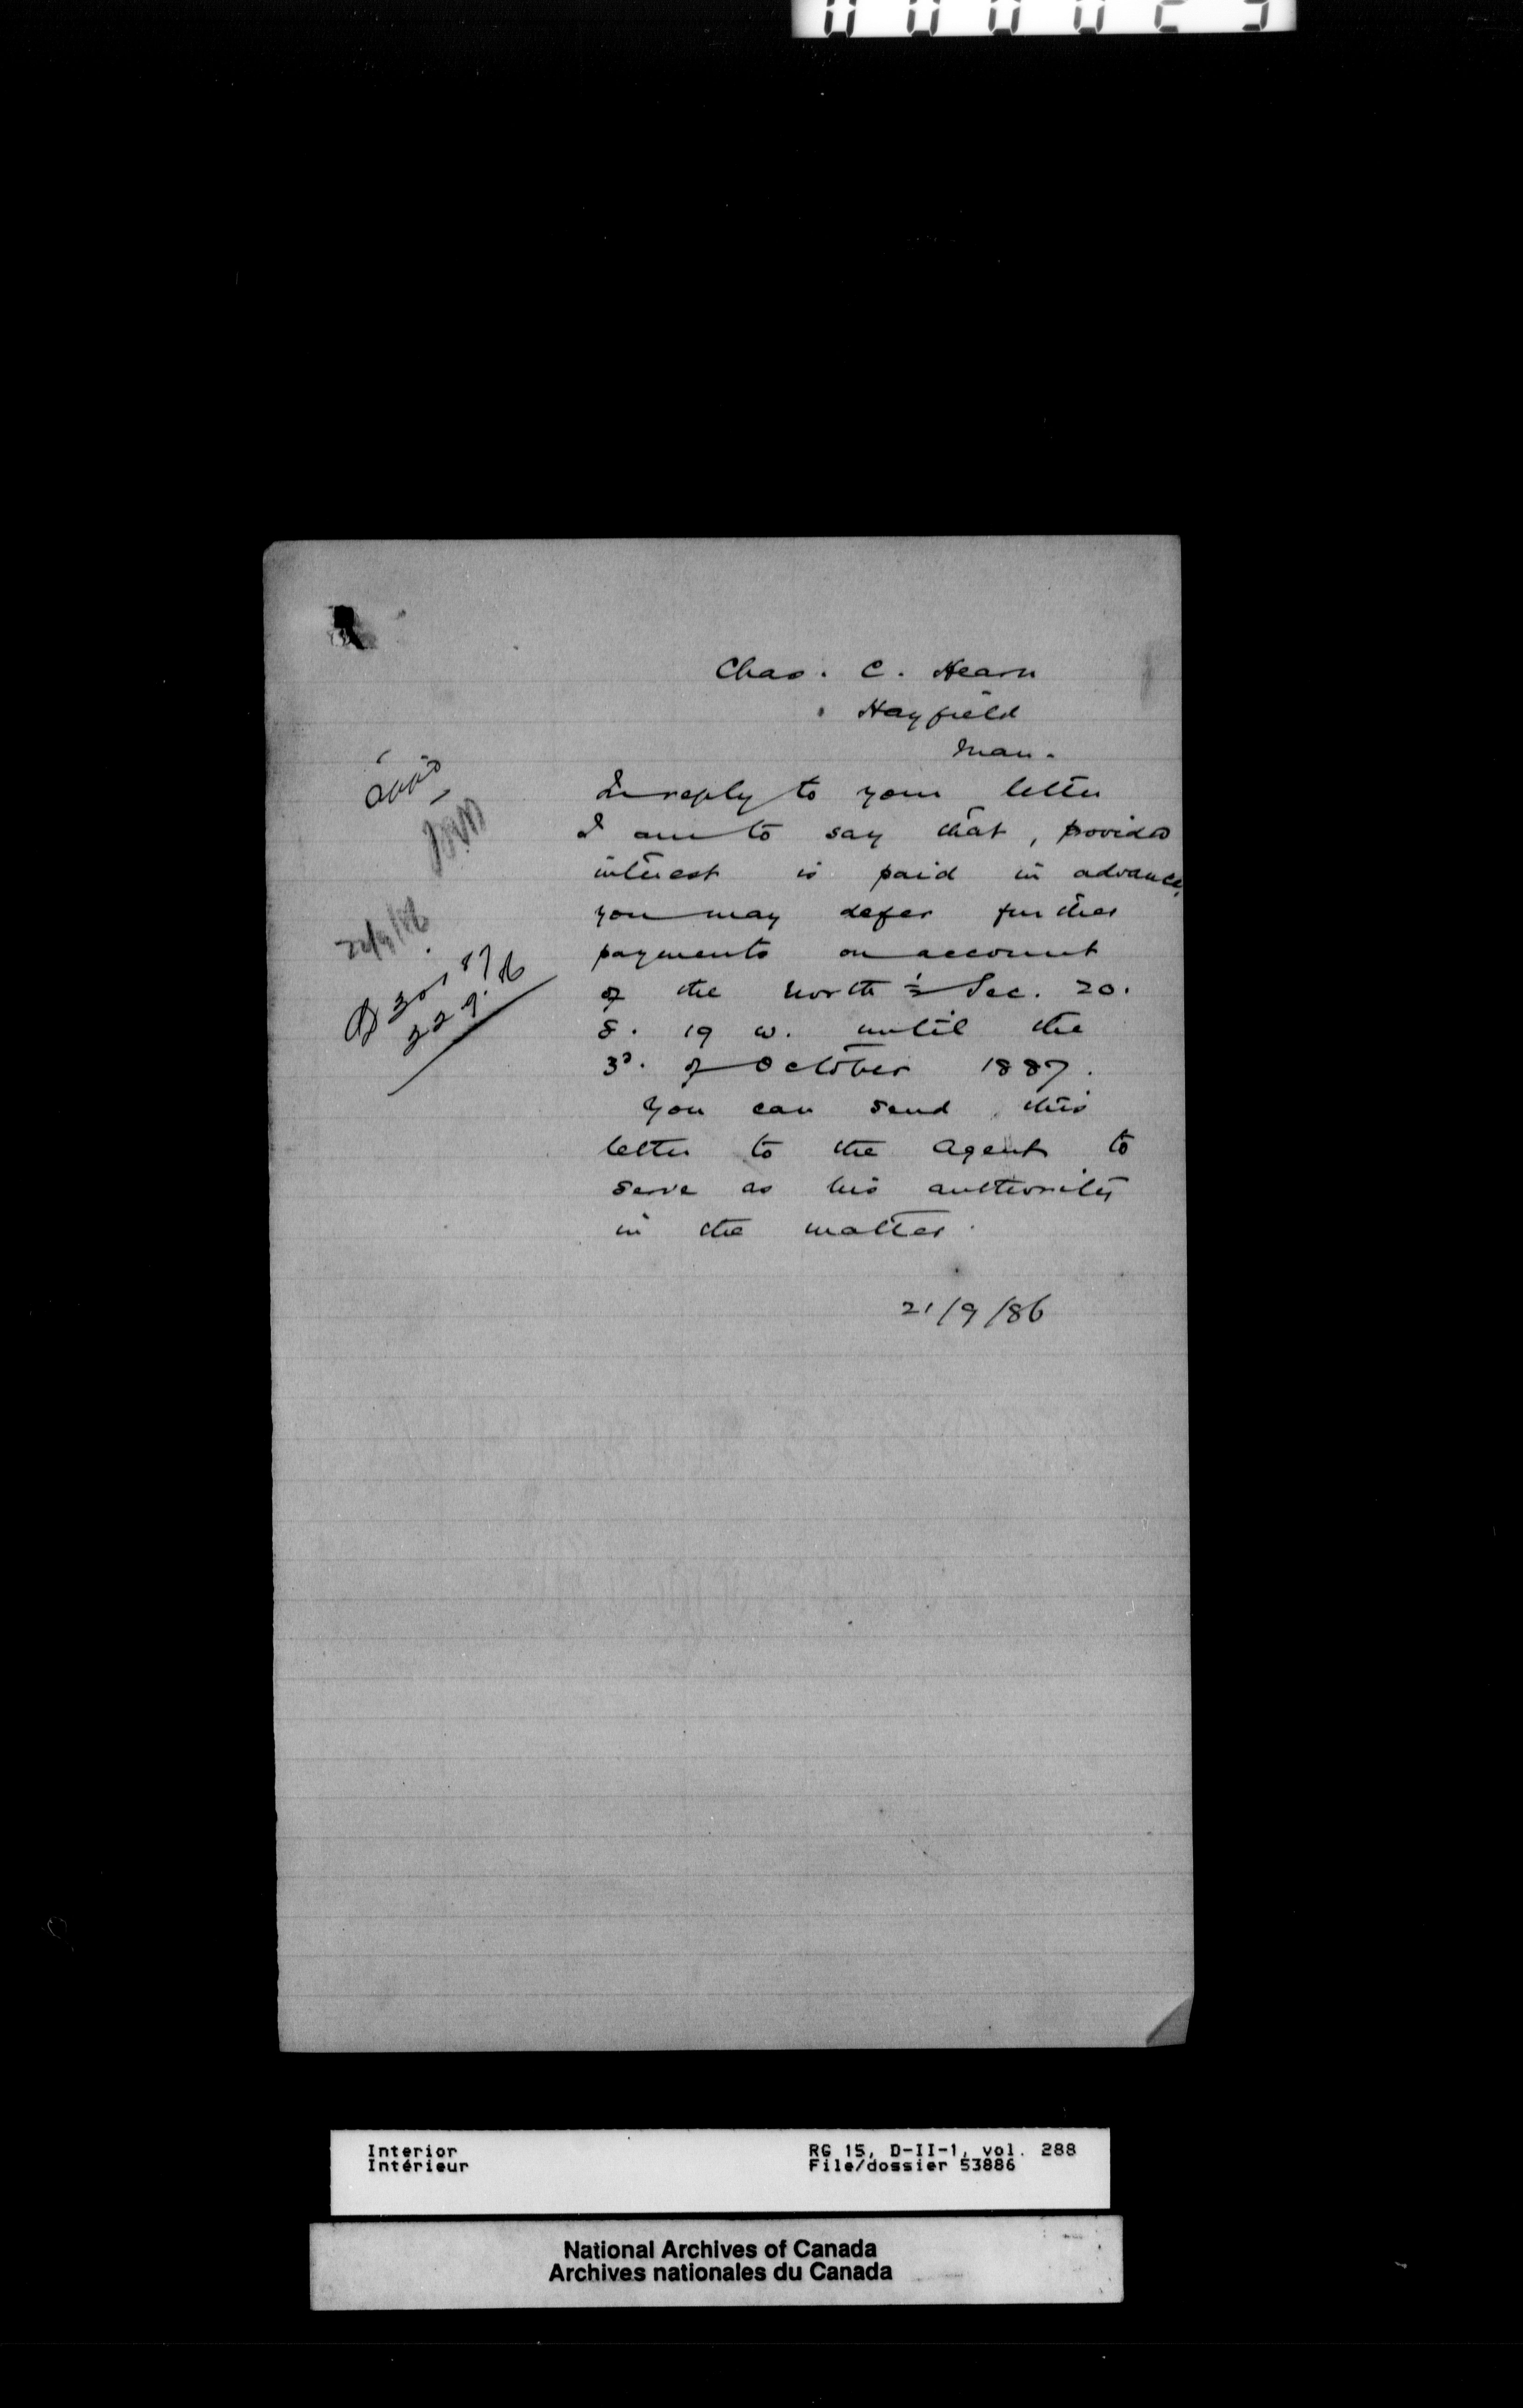 000029
Chas. C. Hearn
Hayfield
Man.
In reply to your letter
I am to say that, provided
interest is paid in advance,
you may defer further
payments on account
of the North ½ Sec. 20.
8. 19 W. until the
3d. of October 1887.
You can send this
letter to the Agent to
serve as his authority
in the matter.
21/9/86
22/9/86
22.9.86
Interior
Intérieur
RG 15, D-II-1, vol. 288
File/dossier 53886
National Archives of Canada
Archives nationales du Canada